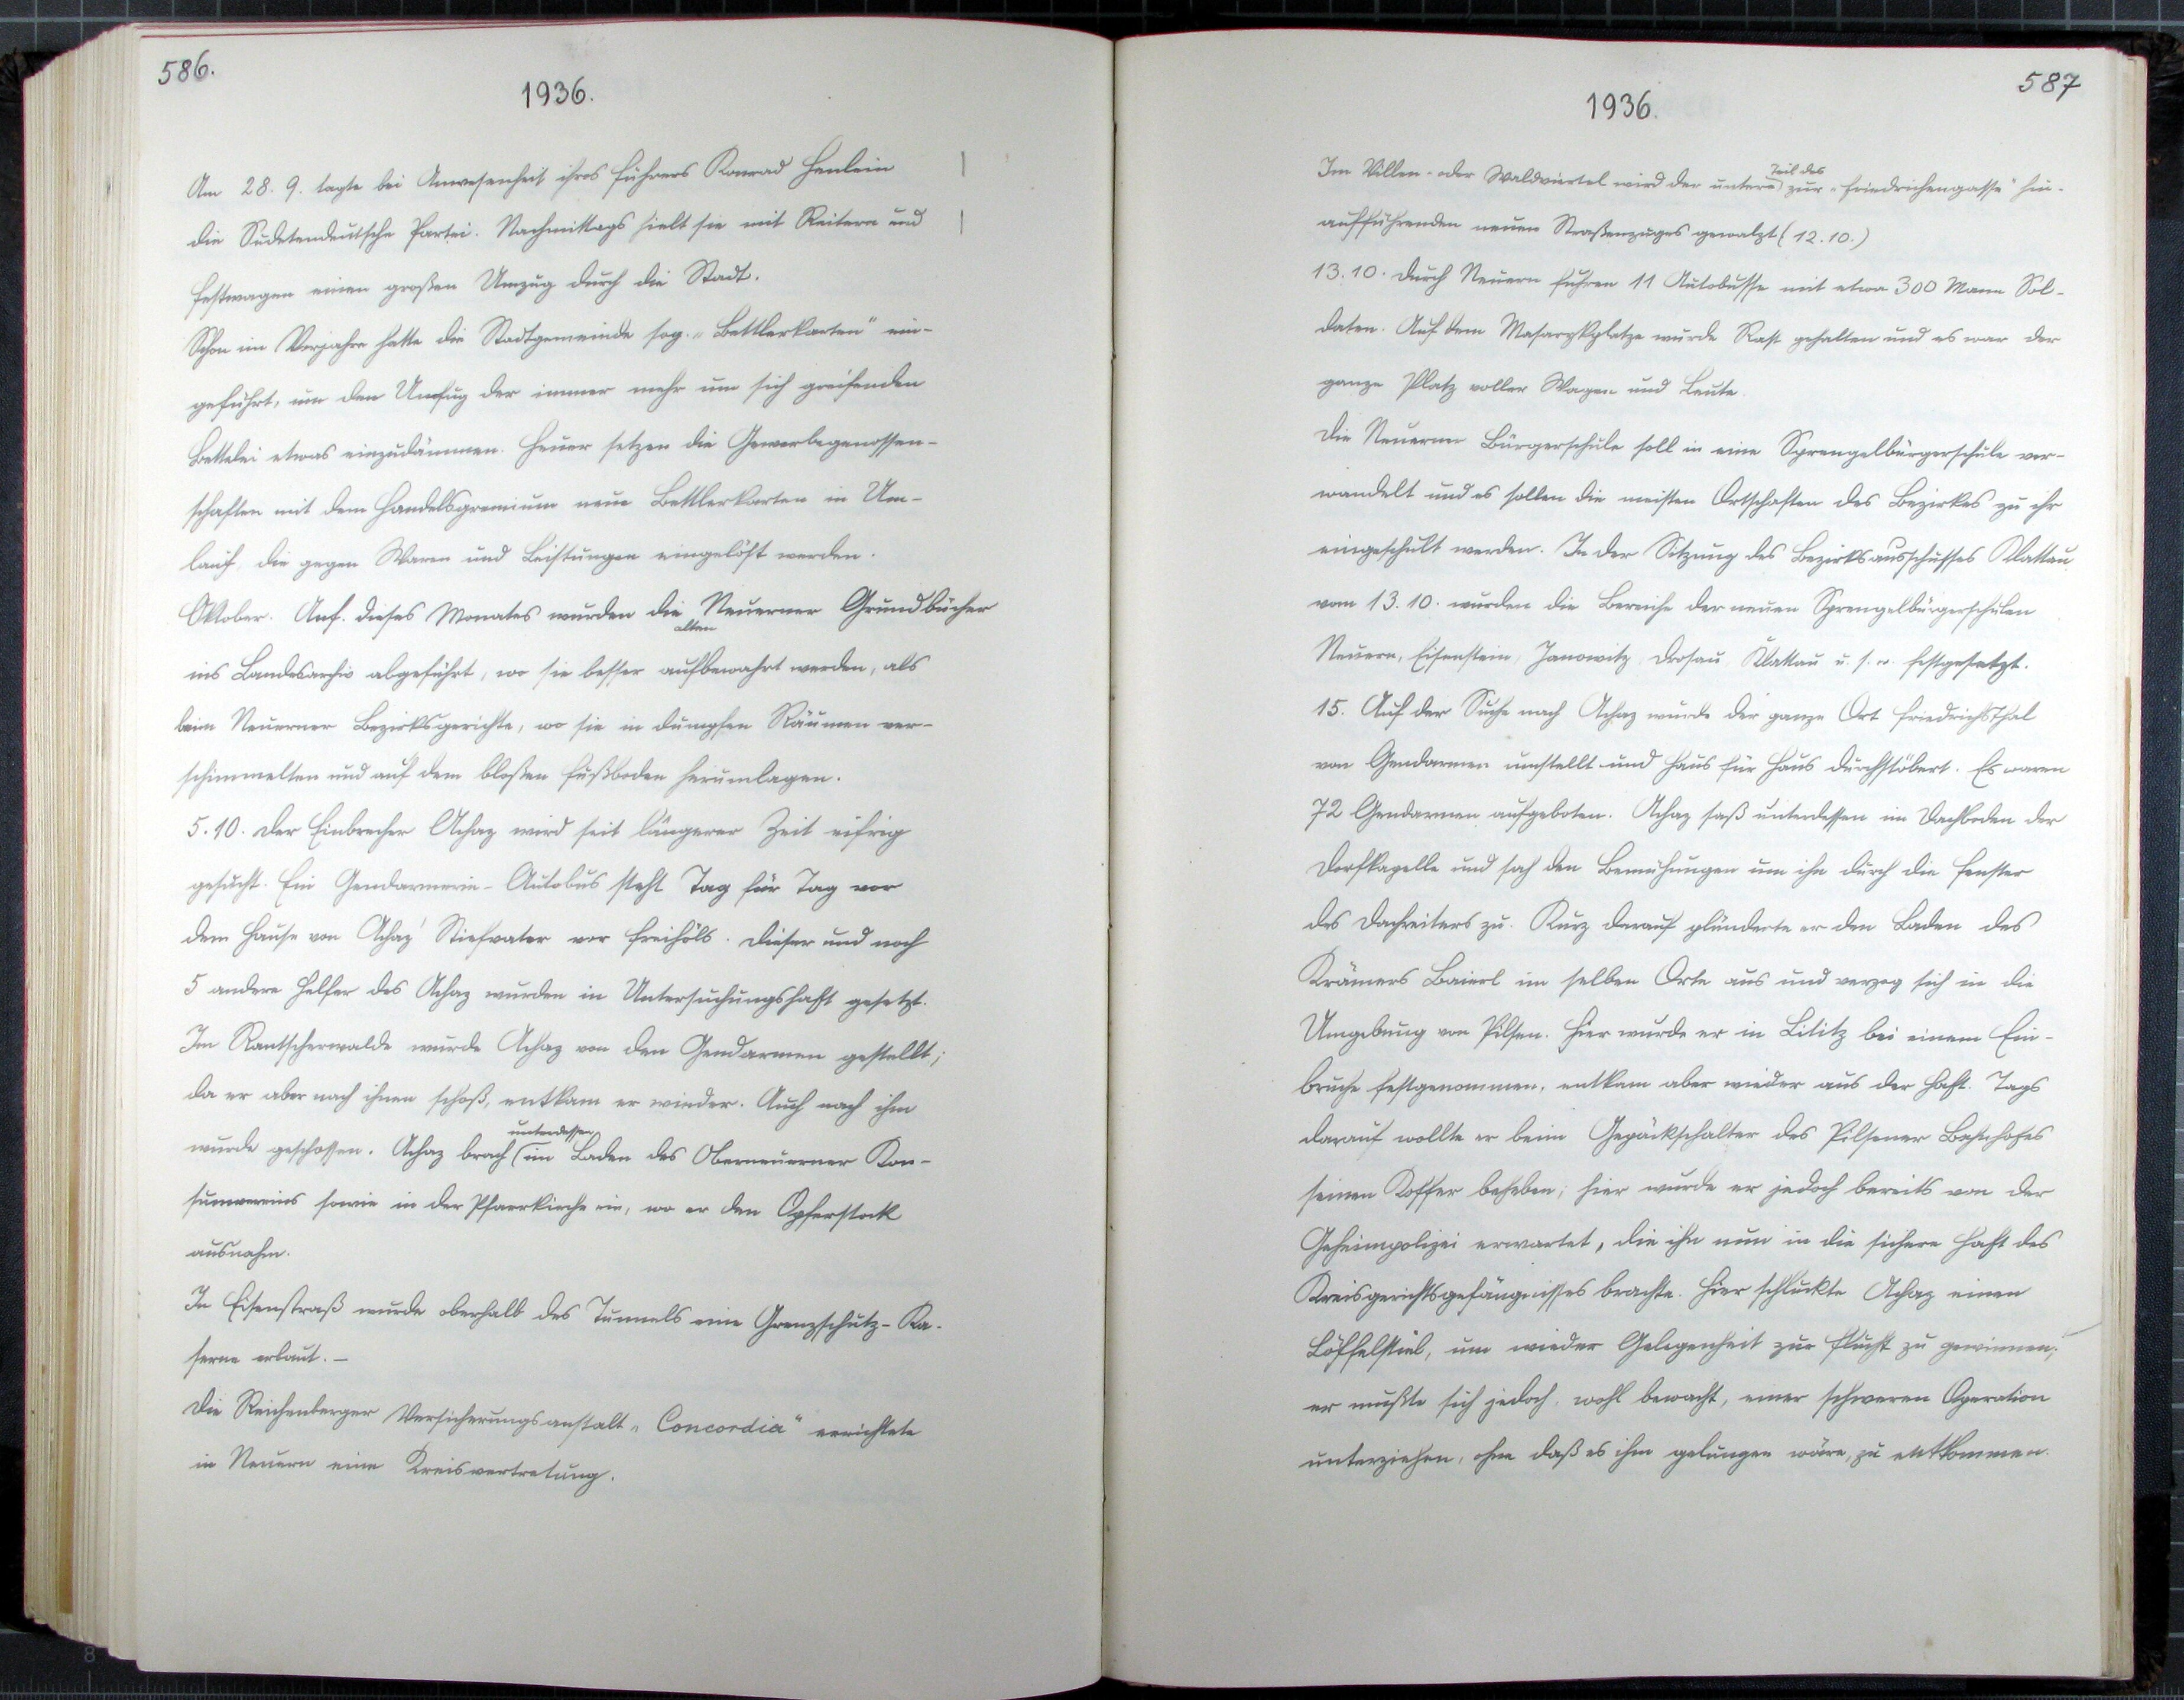 586.
1936.
Am 28. 9. tagte bei Anwesenheit ihres Führers Konrad Henlein
die Sudetendeutsche Partei. Nachmittags hielt sie mit Reitern und
Festwagen einen großen Umzug durch die Stadt.
Schon im Vorjahre hatte die Stadtgemeinde sog. „Bettlerkarten" ein-
geführt, um den Unfug der immer mehr um sich greifenden
Bettelei etwas einzudämmen. Heuer setzen die Gewerbegenossen-
schaften mit dem Handelsgremium neue Bettlerkarten in Um-
lauf, die gegen Waren und Leistungen eingelöst werden.
Oktober. Anf. dieses Monates wurden die alten Neuerner Grundbücher
ins Landesarchiv abgeführt, wo sie besser aufbewahrt werden, als
beim Neuerner Bezirksgerichte, wo sie in dumpfen Räumen ver-
schimmelten und auf dem bloßen Fußboden herumlagen.
5. 10. Der Einbrecher Achaz wird seit längerer Zeit eifrig
gesucht. Ein Gendarmerie-Autobus steht Tag für Tag vor
dem Hause von Achaz' Stiefvater vor Freihöls. Dieser und noch
5 andere Helfer des Achaz wurden in Untersuchungshaft gesetzt.
Im Rantscherwalde wurde Achaz von den Gendarmen gestellt;
da er aber nach ihnen schoß, entkam er wieder. Auch nach ihm
wurde geschossen. Achaz brach unterdessen im Laden des Oberneuerner Kon-
sumvereins sowie in der Pfarrkirche ein, wo er den Opferstock
ausnahm.
In Eisenstraß wurde oberhalb des Tunnels eine Grenzschutz-Ka-
serne erbaut. –
Die Reichenberger Versicherungsanstalt „Concordia" errichtete
in Neuern eine Kreisvertretung.
587
1936.
Im Villen- oder Waldviertel wird der untere Teil des zur „Friedrichengasse" hin-
aufführenden neuen Straßenzuges gewalzt (12. 10.)
13. 10. Durch Neuern fuhren 11 Autobusse mit etwa 300 Mann Sol-
daten. Auf dem Masarykplatze wurde Rast gehalten und es war der
ganze Platz voller Wagen und Leute.
Die Neuerner Bürgerschule soll in eine Sprengelbürgerschule ver-
wandelt und es sollen die meisten Ortschaften des Bezirkes zu ihr
eingeschult werden. In der Sitzung des Bezirksausschusses Klattau
vom 13. 10. wurden die Bereiche der neuen Sprengelbürgerschulen
Neuern, Eisenstein, Janowitz, Drosau, Klattau u. s. w. festgesetzt.
15. Auf der Suche nach Achaz wurde der ganze Ort Friedrichsthal
von Gendarmen umstellt und Haus für Haus durchstöbert. Es waren
72 Gendarmen aufgeboten. Achaz saß unterdessen im Dachboden der
Dorfkapelle und sah den Bemühungen um ihn durch die Fenster
des Dachreiters zu. Kurz darauf plünderte er den Laden des
Krämers Baierl im selben Orte aus und verzog sich in die
Umgebung von Pilsen. Hier wurde er in Lititz bei einem Ein-
bruche festgenommen, entkam aber wieder aus der Haft. Tags
darauf wollte er beim Gepäckschalter des Pilsener Bahnhofes
seinen Koffer beheben; hier wurde er jedoch bereits von der
Geheimpolizei erwartet, die ihn nun in die sichere Haft des
Kreisgerichtsgefängnisses brachte. Hier schluckte Achaz einen
Löffelstiel, um wieder Gelegenheit zur Flucht zu gewinnen;
er mußte sich jedoch, wohl bewacht, einer schweren Operation
unterziehen, ohne daß es ihm gelungen wäre, zu entkommen.
8